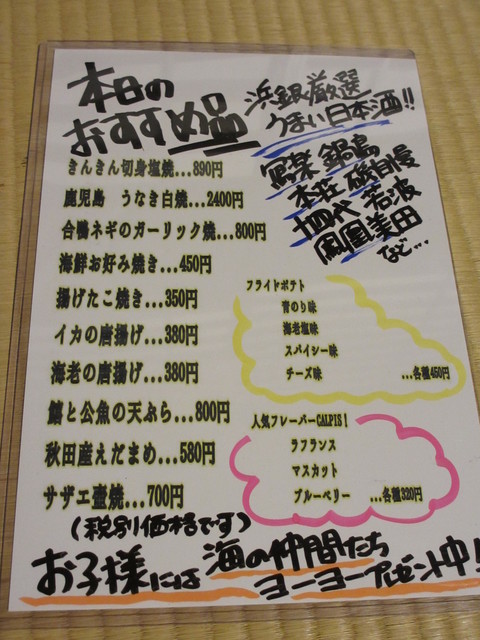 本日の
おすすめ品
きんきん切身塩焼...890円
鹿児島 うなぎ白焼...2400円
合鴨ネギのガーリック焼...800円
海鮮お好み焼き...450円
揚げたこ焼き...350円
イカの唐揚げ...380円
海老の唐揚げ...380円
鱚と公魚の天ぷら...800円
秋田産えだまめ...580円
サザエ壷焼...700円
(税別価格です)
浜銀厳選
うまい日本酒!!
寫楽 鍋島
本荘 磯自慢
十四代 若波
鳳凰美田
など...
フライドポテト
青のり味
海老塩味
スパイシー味
チーズ味 ...各種450円
人気フレーバーCALPIS!
ラフランス
マスカット
ブルーベリー ...各種320円
お子様には 海の仲間たち
ヨーヨープレゼント中!